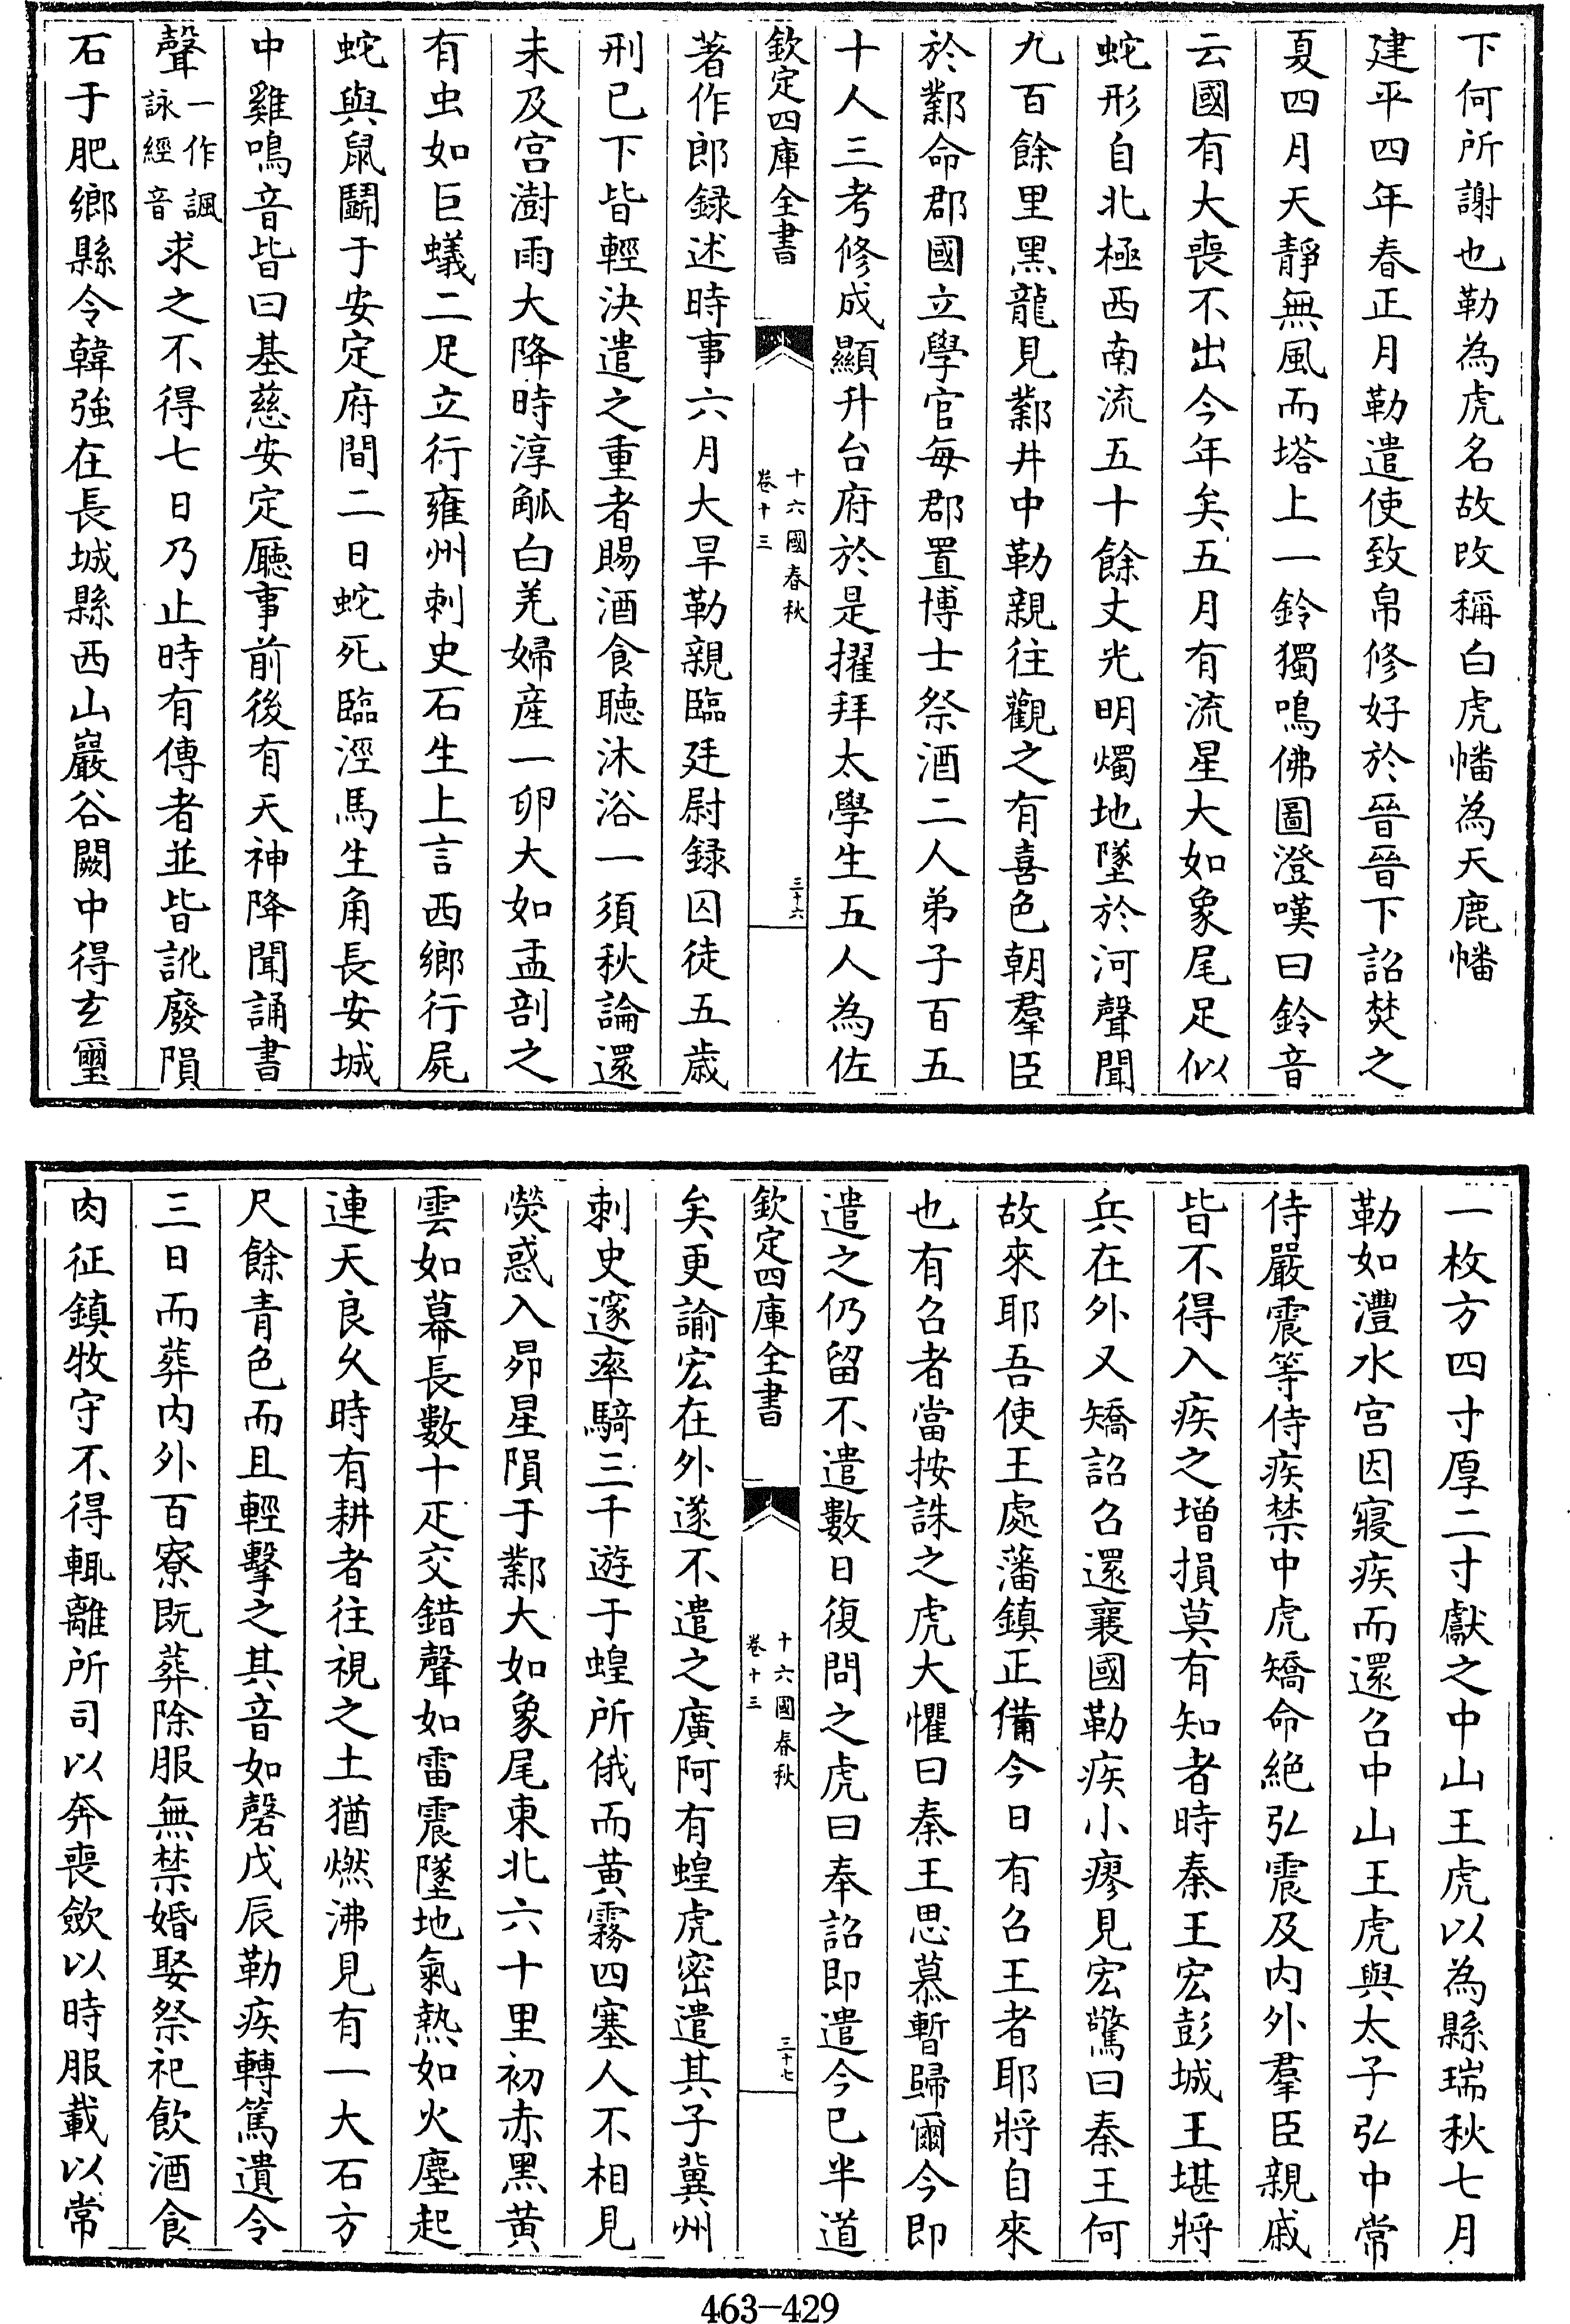 下何所謝也勒為虎名故改稱白虎幡為天鹿幡
建平四年春正月勒遣使致帛修好於晉晉下詔焚之
夏四月天靜無風而塔上一鈴獨鳴佛圖澄嘆曰鈴音
云國有大喪不出今年矣五月有流星大如象尾足似
蛇形自北極西南流五十餘丈光明燭地墜於河聲聞
九百餘里黑龍見鄴井中勒親往觀之有喜色朝羣臣
於鄴命郡國立學官每郡置博士祭酒二人弟子百五
十人三考修成顯升台府於是擢拜太學生五人為佐
欽定四庫全書
十六國春秋
卷十三
三十六
著作郎録述時事六月大旱勒親臨廷尉録囚徒五歳
刑已下皆輕決遣之重者賜酒食聽沐浴一須秋論還
未及宮澍雨大降時淳觚白羌婦產一卵大如盂剖之
有虫如巨蟻二足立行雍州刺史石生上言西鄉行屍
蛇與鼠鬭于安定府間二日蛇死臨涇馬生角長安城
中雞鳴音皆曰基慈安定廳事前後有天神降聞誦書
聲一作諷詠經音求之不得七日乃止時有傳者並皆訛廢隕
石于肥鄉縣令韓強在長城縣西山巖谷闕中得玄璽
一枚方四寸厚二寸獻之中山王虎以為縣瑞秋七月
勒如灃水宮因寢疾而還召中山王虎與太子弘中常
侍嚴震等侍疾禁中虎矯命絕弘震及內外羣臣親戚
皆不得入疾之增損莫有知者時秦王宏彭城王堪將
兵在外又矯詔召還襄國勒疾小瘳見宏驚曰秦王何
故來耶吾使王處藩鎮正備今日有召王者耶將自來
也有召者當按誅之虎大懼曰秦王思慕暫歸爾今即
遣之仍留不遣數日復問之虎曰奉詔即遣今已半道
欽定四庫全書
十六國春秋
卷十三
三十七
矣更諭宏在外遂不遣之廣阿有蝗虎密遣其子冀州
刺史邃率騎三千遊于蝗所俄而黃霧四塞人不相見
熒惑入昴星隕于鄴大如象尾東北六十里初赤黑黃
雲如幕長數十疋交錯聲如雷震墜地氣熱如火塵起
連天良久時有耕者往視之土猶燃沸見有一大石方
尺餘青色而且輕擊之其音如磬戊辰勒疾轉篤遺令
三日而葬內外百寮既葬除服無禁婚娶祭祀飲酒食
肉征鎮牧守不得輒離所司以奔喪斂以時服載以常
463-429